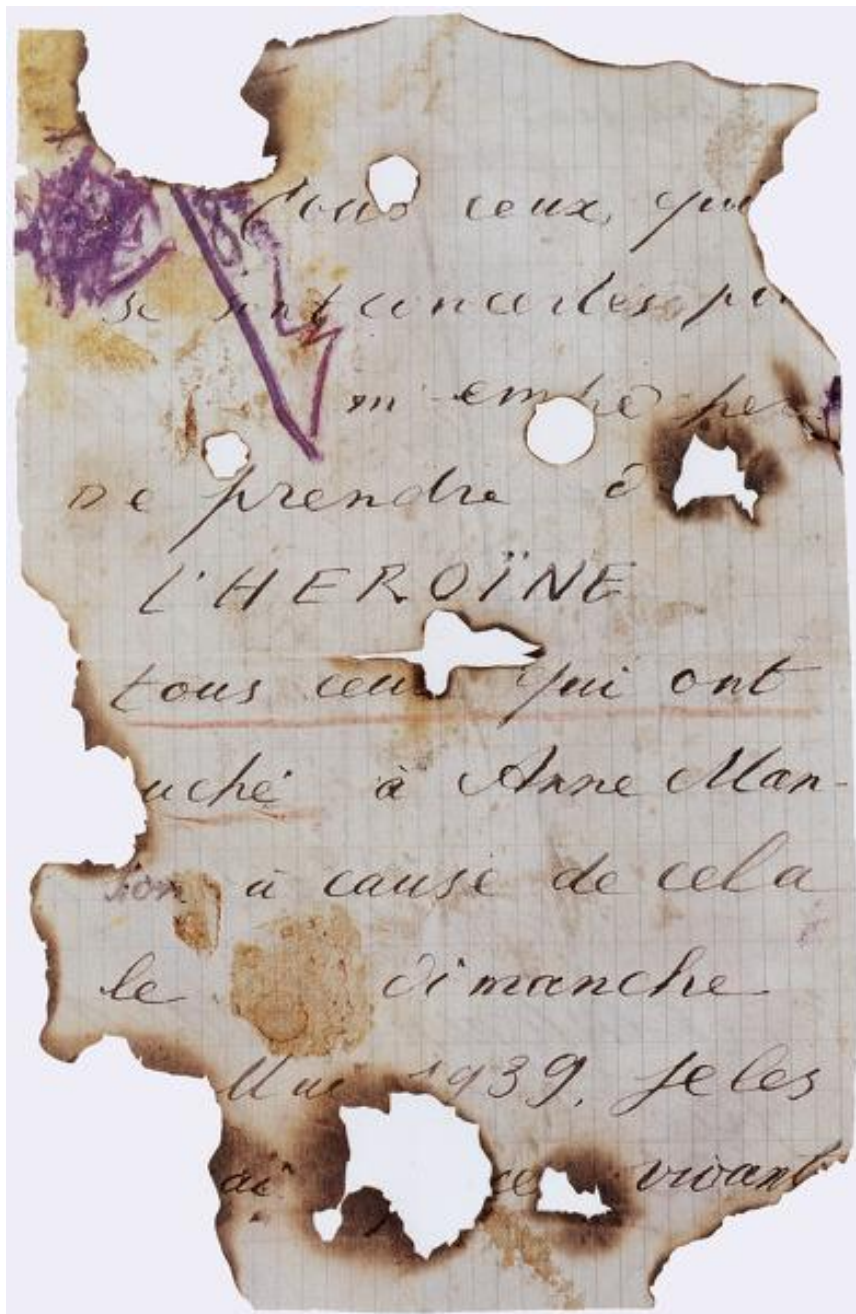 Tous ceux, qui
se sont concertés pour
m'empêcher
de prendre de
L'HEROÏNE
tous ceux qui ont
uché à Anne Man-
sion à cause de cela
le dimanche
Mai 1939, je les
ai vivant